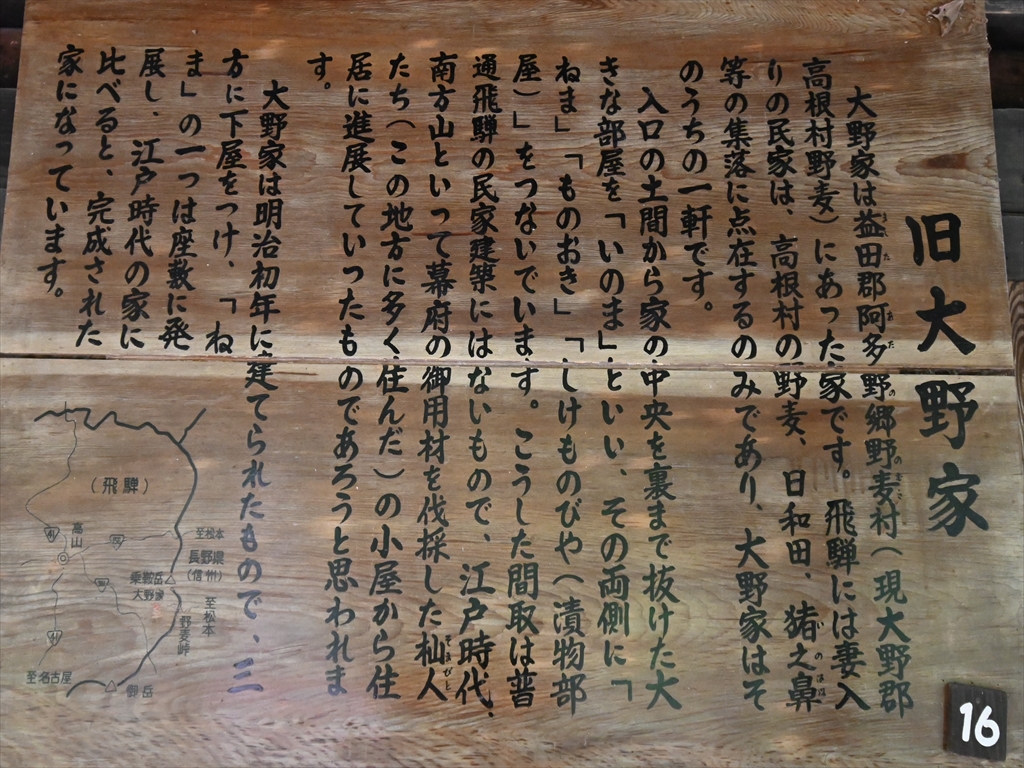 旧大野家
大野家は益田郡阿多野郷野麦村（現大野郡
高根村野麦）にあった家です。飛騨には妻入
りの民家は、高根村の野麦、日和田、猪之鼻
等の集落に点在するのみであり、大野家はそ
のうちの一軒です。
入口の土間から家の中央を裏まで抜けた大
きな部屋を「いのま」といい、その両側に「
ねま」「ものおき」「しけものびや（漬物部
屋）」をつないでいます。こうした間取は普
通飛騨の民家建築にはないもので、江戸時代、
南方山といって幕府の御用材を伐採した杣人
たち（この地方に多く住んだ）の小屋から住
居に進展していったものであろうと思われま
す。
大野家は明治初年に建てられたもので、三
方に下屋をつけ、「ね
ま」の一つは座敷に発
展し、江戸時代の家に
比べると、完成された
家になっています。
（飛騨）
高山
41
至松本
長野県
（信州）
乗鞍岳
大野家
至松本
野麦峠
41
至名古屋
御岳
16